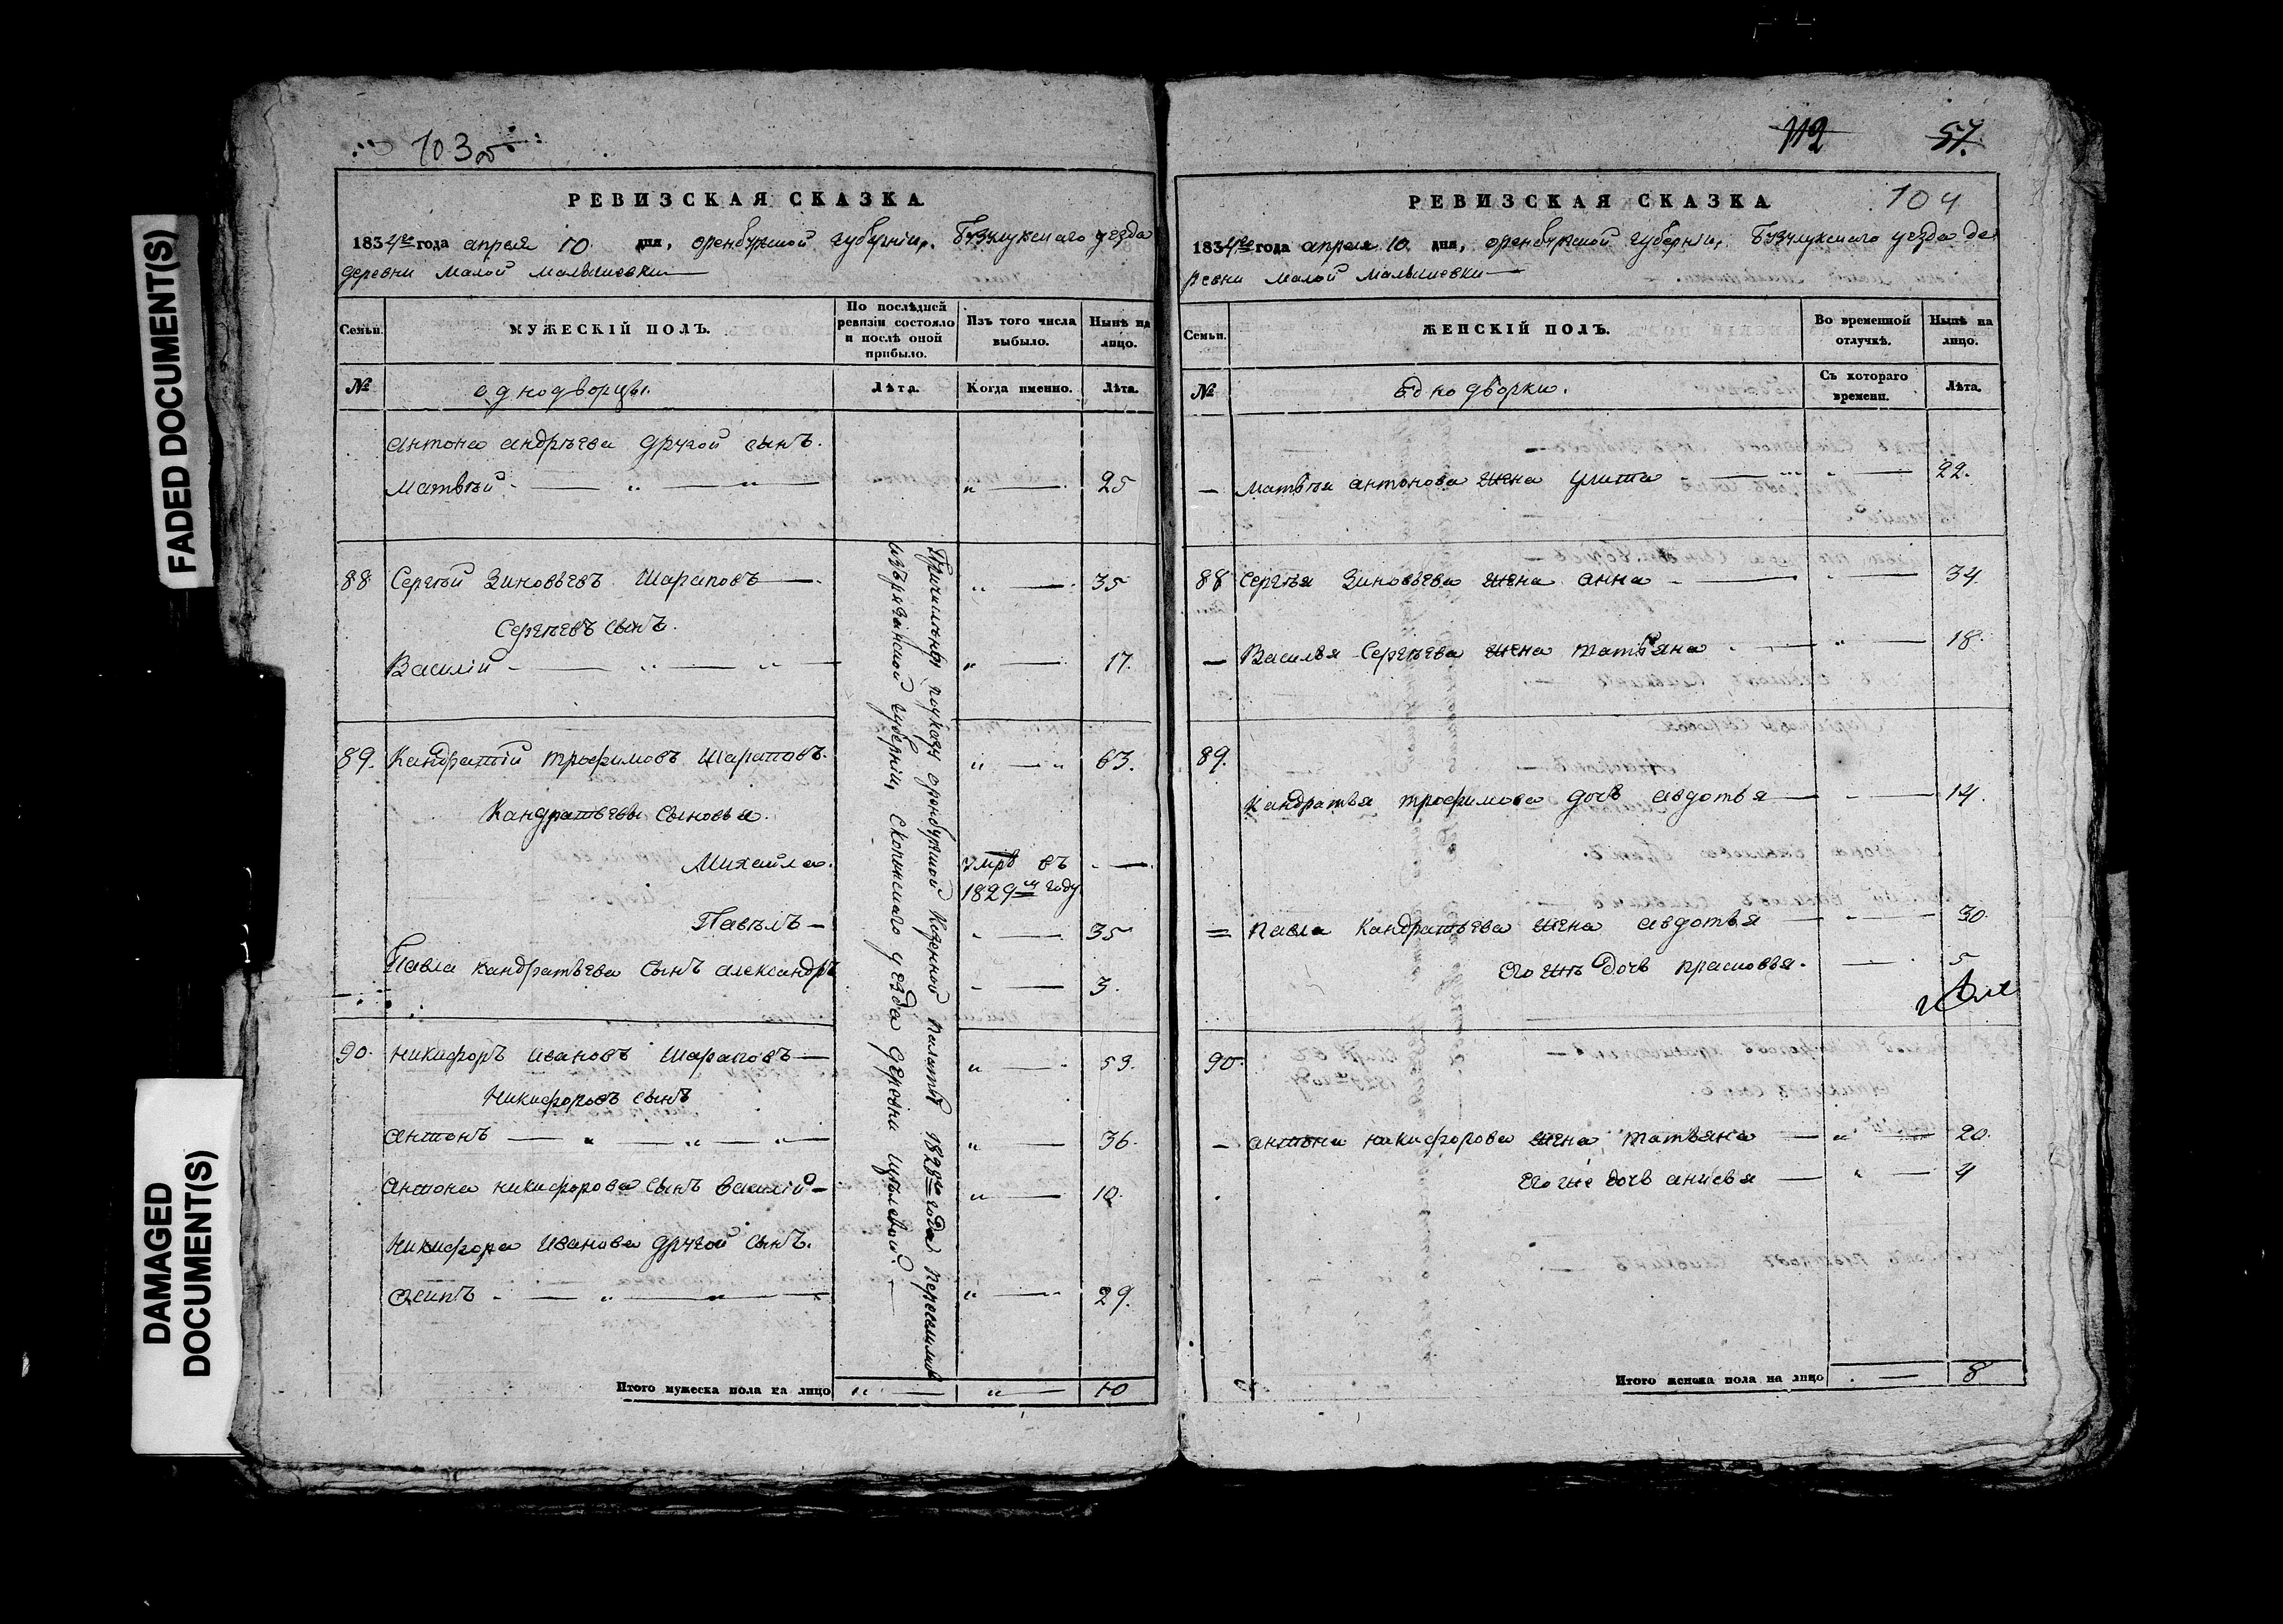 FADED DOCUMENT(S)
DAMAGED
DOCUMENT(S)
103об
РЕВИЗСКАЯ СКАЗКА
1834го года апреля 10 дня, оренбургской губернии, Бузулукскаго уезда
деревни малой малышевки
Семьи.
МУЖЕСКІЙ ПОЛЪ.
По послѣдней ревизіи состояло и послѣ оной прибыло.
Изъ того числа выбыло.
Нынѣ на лицо.
№
однодворцы.
Лѣта.
Когда именно.
Лѣта.
антона андрѣева другой сынъ.
матвѣй 25
88 Сергѣй Зиновьевъ Шараповъ 35
Сергѣевъ сынъ.
Василій 17.
89. Кандратій трофимовъ Шараповъ. 63.
Кандратьевы сыновья.
Михайла. умре въ 1829м году
Павѣлъ 35
Павла кандратьева сынъ александръ 3.
90. никифоръ ивановъ Шараповъ 59.
никифоровъ сынъ
антонъ 36.
антона никифорова сынъ василій 10.
никифора иванова другой сынъ.
осипъ 29.
Причислены по указу оренбургской Казенной палаты 1828го года переселились
изъ рязанской губернии, скопинскаго уезда деревни
Итого мужеска пола на лицо 10
112
57.
104
РЕВИЗСКАЯ СКАЗКА
1834го года апреля 10 дня, оренбургской губернии, Бузулукскаго уезда де
ревни малой малышевки
Семьи.
ЖЕНСКІЙ ПОЛЪ.
Во временной отлучкѣ.
Нынѣ на лицо.
№
однодворки.
Съ котораго времени.
Лѣта.
матвѣя антонова жена улита 22.
88 Сергѣя Зиновьева жена анна 34
Василья Сергѣева жена татьяна 18.
89.
Кандратья трофимова дочь авдотья 14.
павла Кандратьева жена авдотья 30.
его же дочь прасковья. 5
90.
антона никифорова жена татьяна 20.
его же дочь анисья 4
Итого женска пола на лицо 8